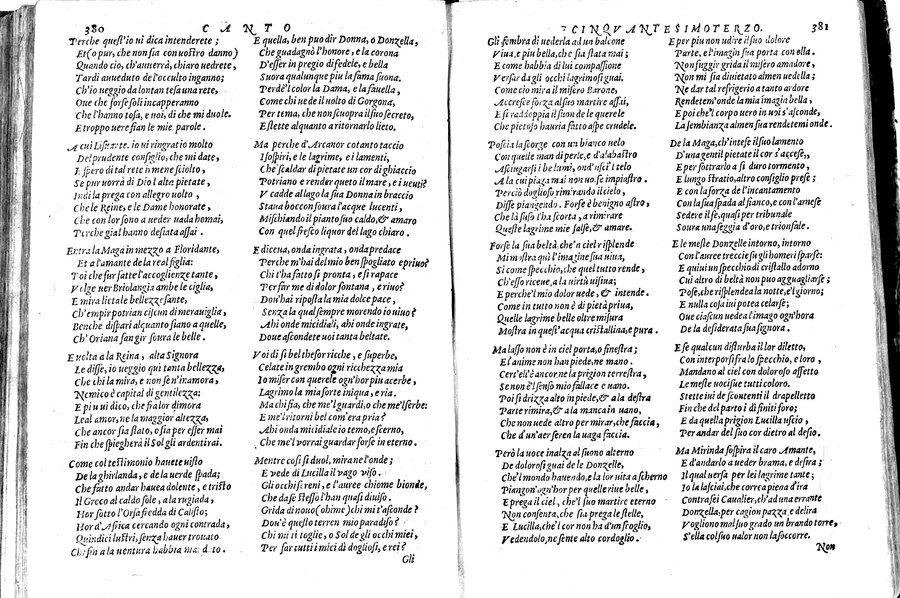 380 CANTO
Perche quest'io ui dica intenderete;
Et(o pur, che non sia con uostro danno)
Quando cio, ch'auuerrà, chiaro uedrete,
Tardi auueduto de l'occulto inganno;
Ch'io ueggio da lontan tesa una rete,
Oue che forse soli incapperanno
Che l'hanno tosa, e uoi, di che mi duole.
E troppo uere fian le mie parole.
A cui Lisuarte. io ui ringratio molto
Del prudente consiglio, che mi date,
E spero di tal rete ir ne sciolto,
Se pur uorrà di Dio l'alta pietate,
Indi la prega con allegro uolto,
Che le Reine, e le Dame honorate,
Che con lor sono a ueder uada homai,
Perche gia l'hanno desiata assai.
Entra la Maga in mezzo a Floridante,
Et a l'amante de la real figlia:
Poi che fur fatte l'accoglienze tante,
Volge uer Briolangia ambe le ciglia,
E mira lieta le bellezze sante,
Ch'empir potrian ciascun di merauiglia,
Benche dispari alquanto siano a quelle,
Ch'Oriana fan gir soura le belle.
E uolta a la Reina, alta Signora
Le disse, io ueggio qui tanta bellezza,
Che chi la mira, e non s'en'inamora,
Nemico è capital di gentilezza:
E piu ui dico, che fia lor dimora
Leal amor, ne la maggior altezza,
Che ancor sia stato, o sia per esser mai
Fin che spiegherà il Sol gli ardenti rai.
Come col testimonio hauete uisto
De la ghirlanda, e de la uerde spada;
Che fatto andar hauea dolente, e tristo
Il Greco al caldo sole, a la rugiada,
Hor sotto l'Orsa fredda di Calisto;
Hor d'Africa cercando ogni contrada,
Quindici lustri, senza hauer trouato
Chi fin a la uentura habbia mai dato.
E quella, ben puo dir Donna, o Donzella,
Che guadagnò l'honore, e la corona
D'esser in pregio di fedele, e bella
Suora qualunque piu la fama suona.
Perde'l color la Dama, e la fauella,
Come chi uede il uolto di Gorgona,
Per tema, che non scuopra il suo secreto,
E stette alquanto a ritornarlo lieto.
Ma perche d'Arcanor cotanto taccio
I sospiri, e le lagrime, e i lamenti,
Che scaldar di pietate un cor di ghiaccio
Potriano e render queto il mare, e i uenti?
V cadde allago la sua Donna in braccio
Staua bocconsoura l'acque lucenti,
Mischiando il pianto suo caldo, & amaro
Con quel fresco liquor del lago chiaro.
E diceua, onda ingrata, onda predace
Perche m'hai del mio ben spogliato e priuo?
Chi t'ha fatto si pronta, e si rapace
Per far me di dolor fontana, e riuo?
Dou'hai riposta la mia dolce pace,
Senza la qual sempre morendo io uiuo?
Ahi onde micidiali, ahi onde ingrate,
Doue ascondete uoi tanta beltate.
Voi di si bel thesor ricche, e superbe,
Celate in grembo ogni ricchezza mia
Io miser con querele ogn'hor piu acerbe,
Lagrimo la mia sorte iniqua, e ria.
Ma chi sia, che me'l guardi, o che me'l serbe:
E me'l ritorni bel com'era pria?
Ahi onda micidiale io temo, e scerno,
Che me'l vorrai guardar forse in eterno.
Mentre cosi si duol, mira ne l'onde;
E vede di Lucilla il vago viso.
Gli occhi sereni, e l'auree chiome bionde,
Che da se stesso l'han quasi diuiso.
Grida di nouo (ohime) chi mi t'asconde?
Dou'è questo terren mio paradiso?
Chi mi ti toglie, o Sol de gli occhi miei,
Per far tutti i mici dì dogliosi, e rei?
Gli
CINQVANTESIMOTERZO. 381
Gli sembra di uederla ad un balcone
Viua, e piu bella, che sia stata mai;
E come habbia di lui compassione
Versar da gli occhi lagrimosi guai.
Come cio mira il misero Barone,
Accresce forza al suo martire assai,
E si raddoppia il suon de le querele
Che pietoso hauria fatto aspe crudele.
Poscia la scorge con un bianco uelo
Con quelle man di perle, e d'alabastro
Asciugarsi i be lumi, ond'uscì'l telo
A la cui piaga mai non uo se impiastro.
Perciò doglioso rimirando il cielo,
Disse piangendo. Forse è benigno astro,
Che là suso l'ha scorta, a rimirare
Queste lagrime mie false, & amare.
Forse la sua beltà, che'n ciel risplende
Mi mostra quì l'imagine sua uiua,
Si come specchio, che quel tutto rende,
Ch'esso riceue, a la uirtù uisiua;
E perche'l mio dolor uede, & intende.
Come in tutto non è di pietà priua,
Quelle lagrime belle oltre misura
Mostra in quest'acqua cristallina, e pura.
Ma lasso non è in ciel porta, o finestra;
E l'anime non han piede, ne mano.
Cert'ell'è ancor ne la prigion terrestra,
Se non è'l senso mio fallace e uano.
Poi si drizza alto in piede, & a la destra
Parte rimira, & a la manca in uano,
Che non uede altro per mirar, che faccia,
Che d'un'aer seren la uaga faccia.
Però la uoce inalza al suono alterno
De dolorosi guai de le Donzelle,
Che'l mondo hauendo, e la lor uita a scherno
Piangon'ogn'hor per quelle riue belle,
E prega il ciel, che'l suo martire eterno
Non consenta, che sia prega le stelle,
E Lucilla, che'l cor non ha d'un scoglio,
Vedendolo, ne sente alto cordoglio.
E per piu non udire il suo dolore
Parte, e l'imagin sua porta con ella.
Non fuggir grida il misero amadore,
Non mi sia diuietato almen uedella;
Ne dar tal refrigerio a tanto ardore
Rendetem'onde la mia imagin bella,
E poi che'l corpo uero in uoi s'asconde,
La sembianza almen sua rendetemi onde.
De la Maga, ch'intese il suo lamento
D'una gentil pietate il cor s'accese,
E per sottrarlo a si duro tormento,
E lungo stratio, altro consiglio prese;
E con la forza de l'incantamento
Con la sua spada al fianco, e con l'arnese
Sedere il fe, quasi per tribunale
Soura una seggia d'oro, e trionfale.
E le meste Donzelle intorno, intorno
Con l'auree treccie su gli homeri sparse:
E quiui un specchio di cristallo adorno
Cui altro di beltà non puo agguagliarse;
Pose, che risplendea la notte, e'l giorno;
E nulla cosa iui potea celarse;
Oue ciascun uedea l'imago ogn'hora
De la desiderata sua signora.
E se qualcun disturba il lor diletto,
Con interporsi fra lo specchio, e loro,
Mandano al ciel con doloroso affetto
Le meste uoci sue tutti coloro.
Stette iui de scontenti il drapelletto
Fin che del parto i dì finiti foro;
E da quella prigion Lucilla uscio,
Per andar del suo cor dietro al desio.
Ma Mirinda sospira il caro Amante,
E d'andarlo a ueder brama, e desira;
Il qual uersa per lei lagrime tante;
Io la lasciai, che correa piena d'ira
Contra sei Caualier, ch'ad una errante
Donzella, per cagion pazza, e delira
Vogliono mal suo grado un brando torre,
S'ella col suo ualor non la soccorre.
Non